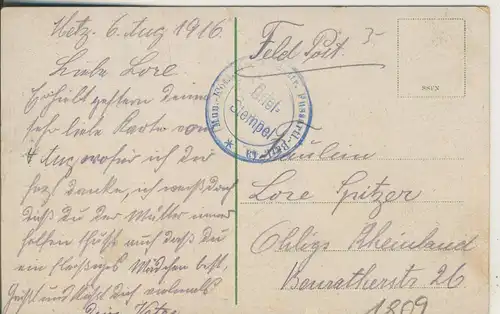 Metz. 6 Aug 1916.
Liebe Lore.
Erhielt gestern deine
sehr liebe Karte vom
4 Aug, wofür ich dir
herz danke, ich weiß doch
daß du der Mutter
helfen thust auch daß du
ein fleißiges Mädchen bist,
Grüßt und Küßt Dich vielmals
Dein Vater
Feld Post.
Brief-
Stempel
Fräulein
Lore Spitzer
Ohligs Rheinland
Benratherstr 26
1809